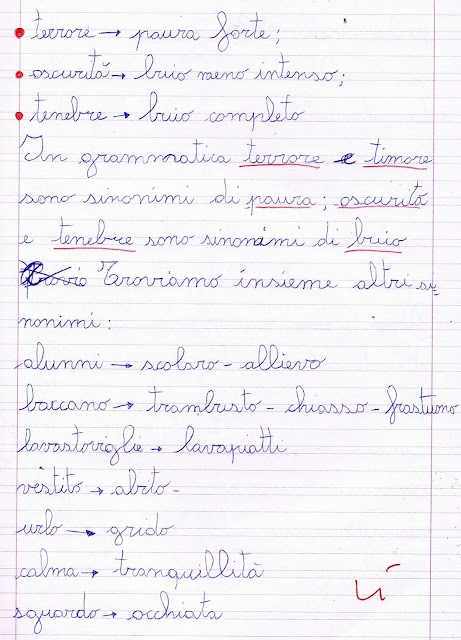 terrore → paura forte;
oscurità → buio meno intenso;
tenebre → buio completo
In grammatica terrore e timore
sono sinonimi di paura; oscurità
e tenebre sono sinonimi di buio
Troviamo insieme altri si=
nonimi:
alunni → scolaro - allievo
baccano → trambusto - chiasso - frastuono
lavastoviglie → lavapiatti
vestito → abito -
urlo → grido
calma → tranquillità
sguardo → occhiata